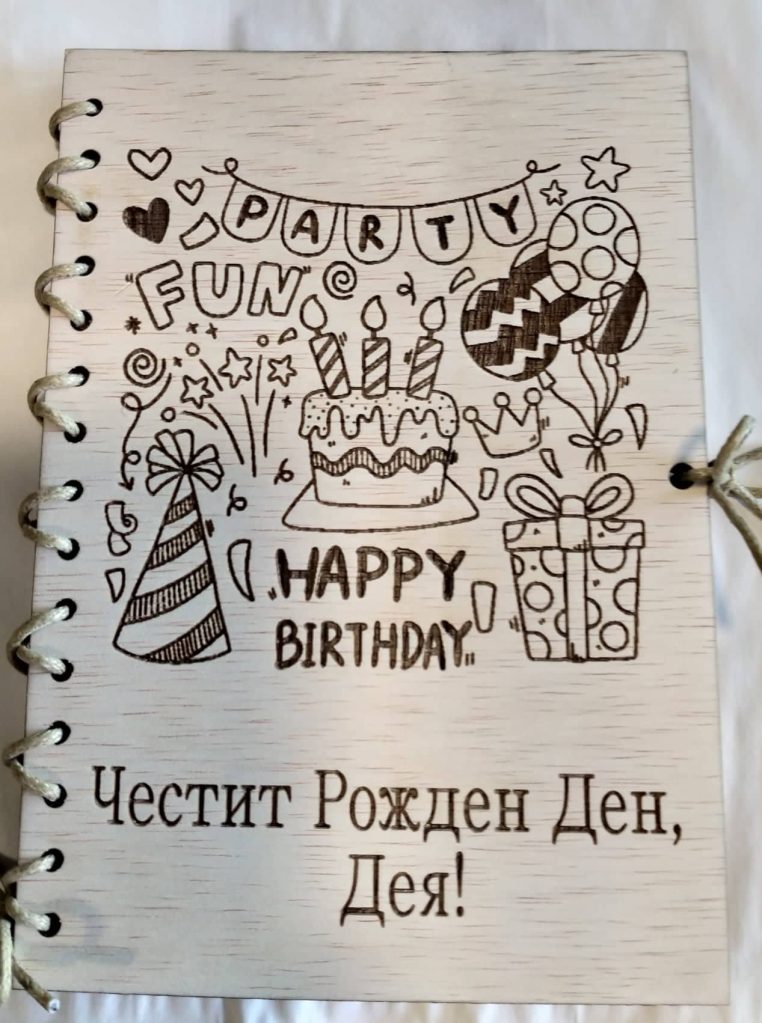 PARTY
"FUN"
HAPPY
BIRTHDAY
Честит Рожден Ден,
Дея!